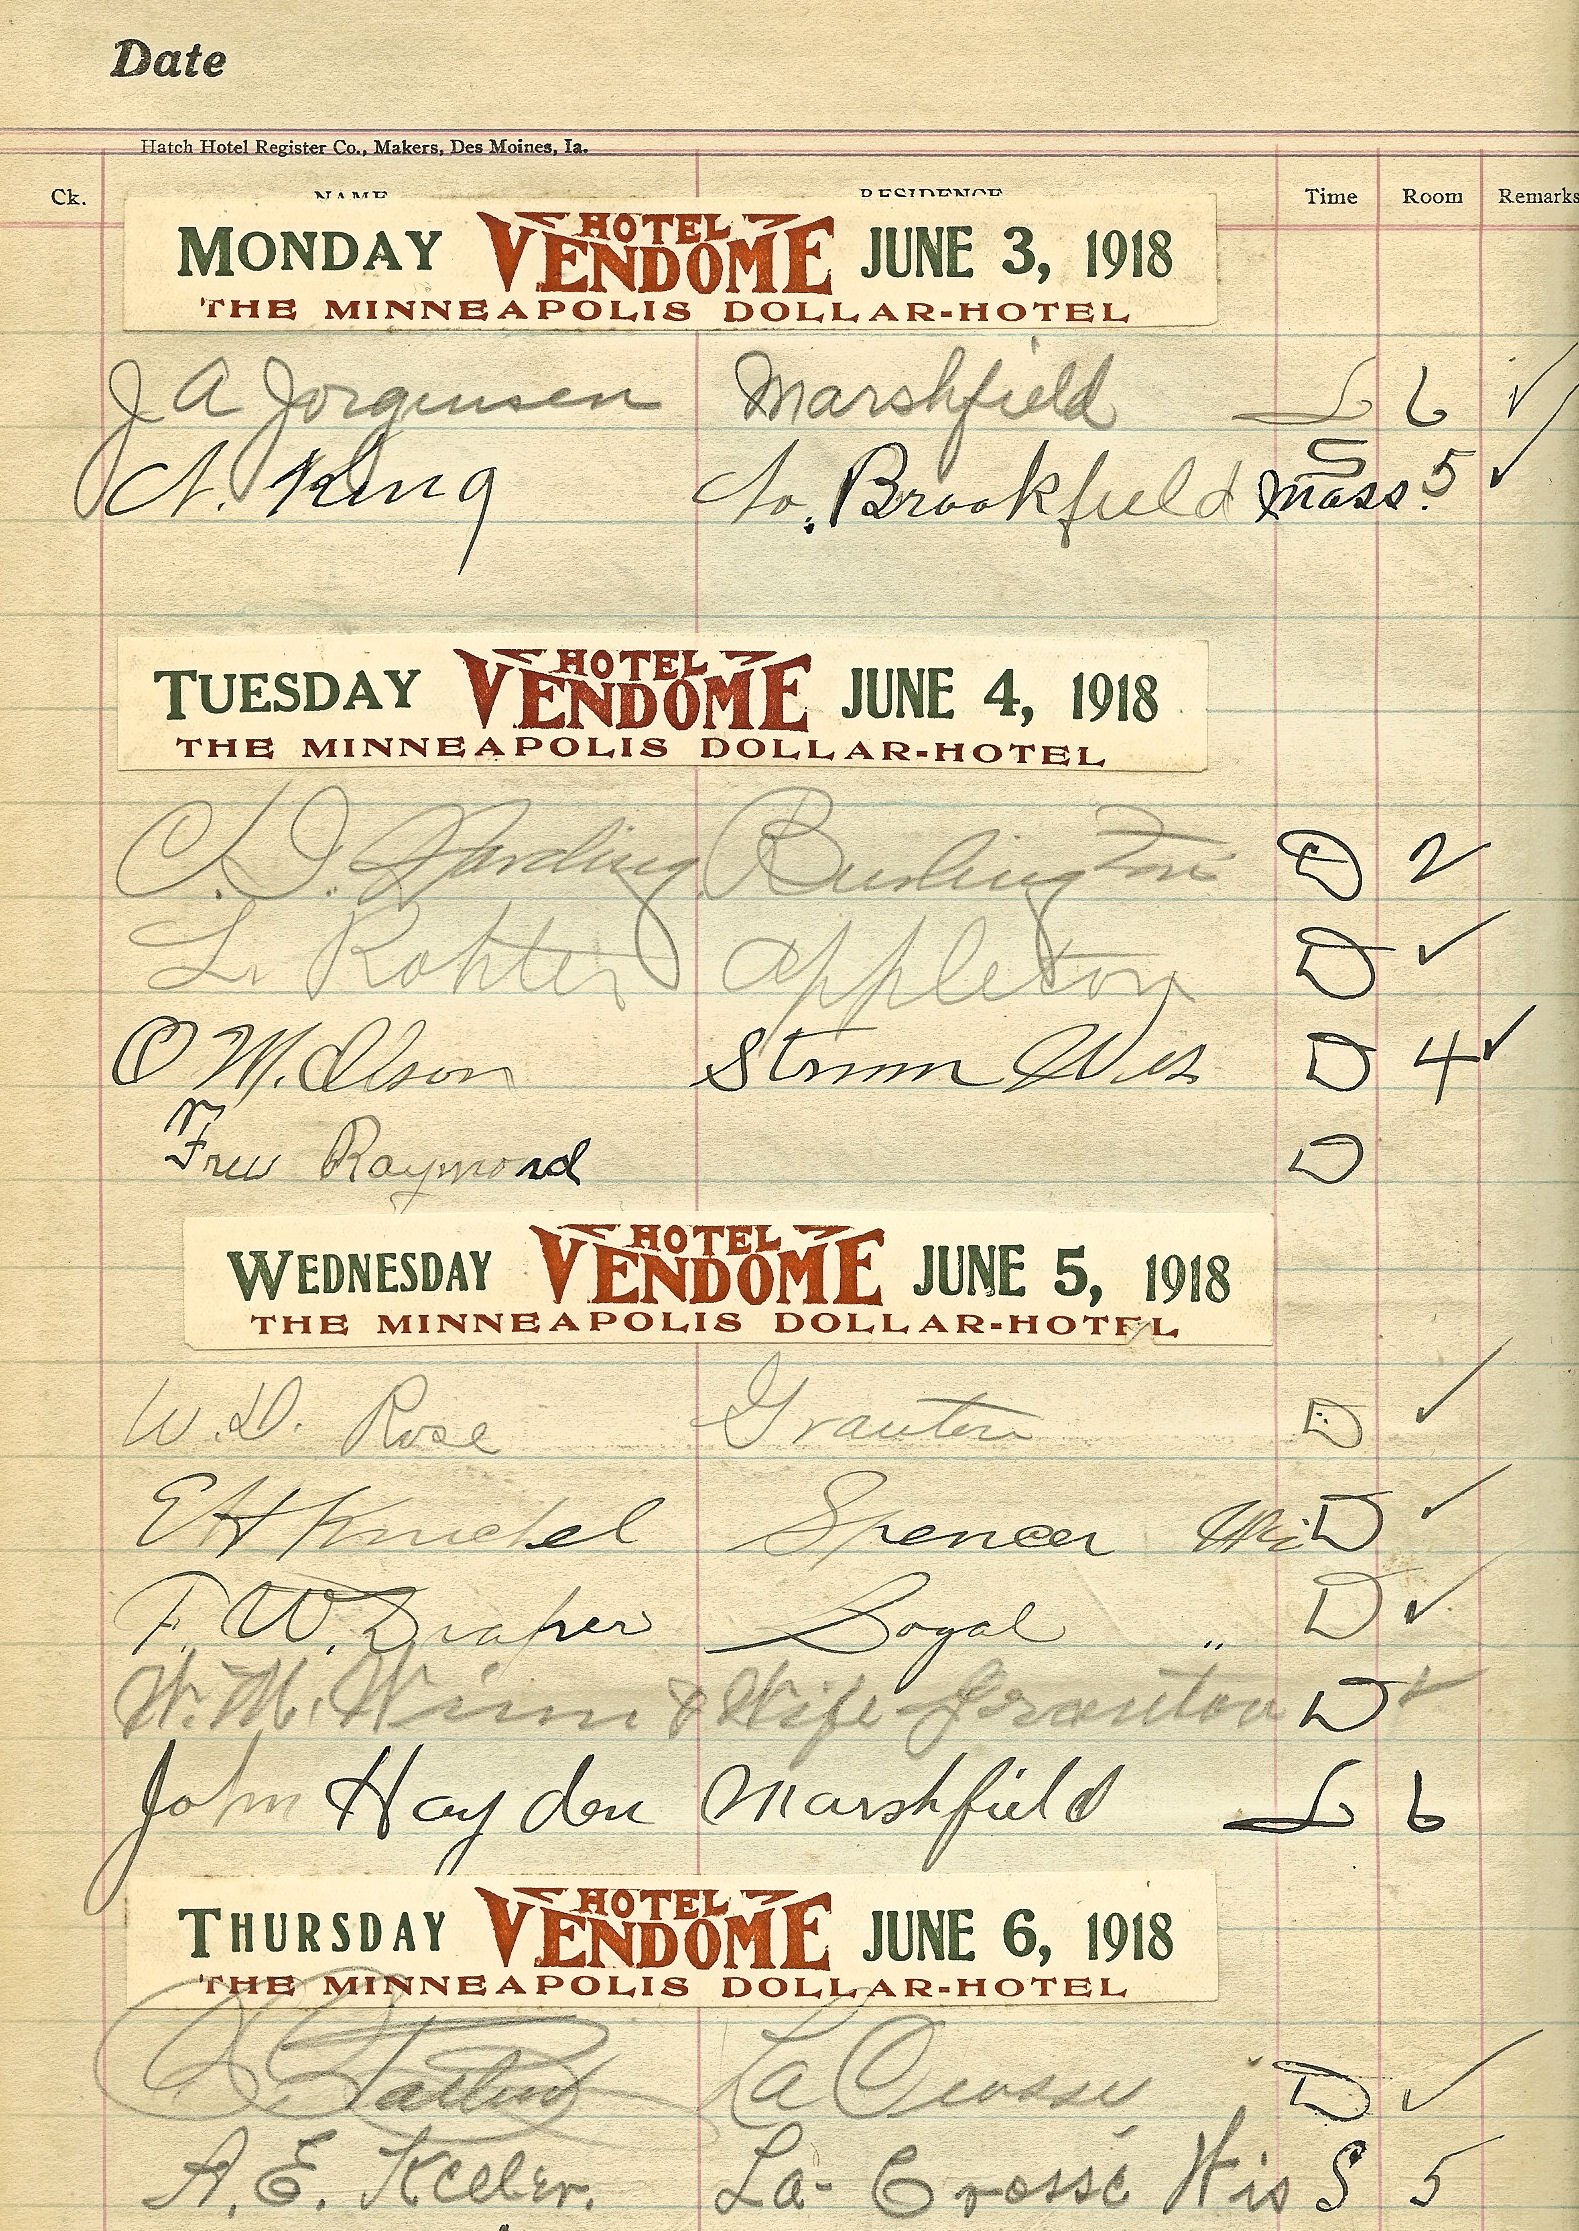 Date
Hatch Hotel Register Co., Makers, Des Moines, Ia.
Ck. NAME RESIDENCE Time Room Remarks
MONDAY HOTEL VENDOME JUNE 3, 1918
THE MINNEAPOLIS DOLLAR-HOTEL
J A Jorgensen Marshfield L 6 ✓
A. King No. Brookfield Mass. S 5 ✓
TUESDAY HOTEL VENDOME JUNE 4, 1918
THE MINNEAPOLIS DOLLAR-HOTEL
C. D. Harding Burlington D 2
L. Kohter Appleton D ✓
O M. Olson Strum Wis D 4 ✓
Raymond D
WEDNESDAY HOTEL VENDOME JUNE 5, 1918
THE MINNEAPOLIS DOLLAR-HOTEL
W. D. Rose Granton D ✓
E H Spencer Wis D ✓
F. W. Draper Loyal " D ✓
W. M. Winn & Wife Granton D
John Hayden Marshfield L 6
THURSDAY HOTEL VENDOME JUNE 6, 1918
THE MINNEAPOLIS DOLLAR-HOTEL
La Crosse D ✓
A. E. Keeler. La-Crosse Wis S 5